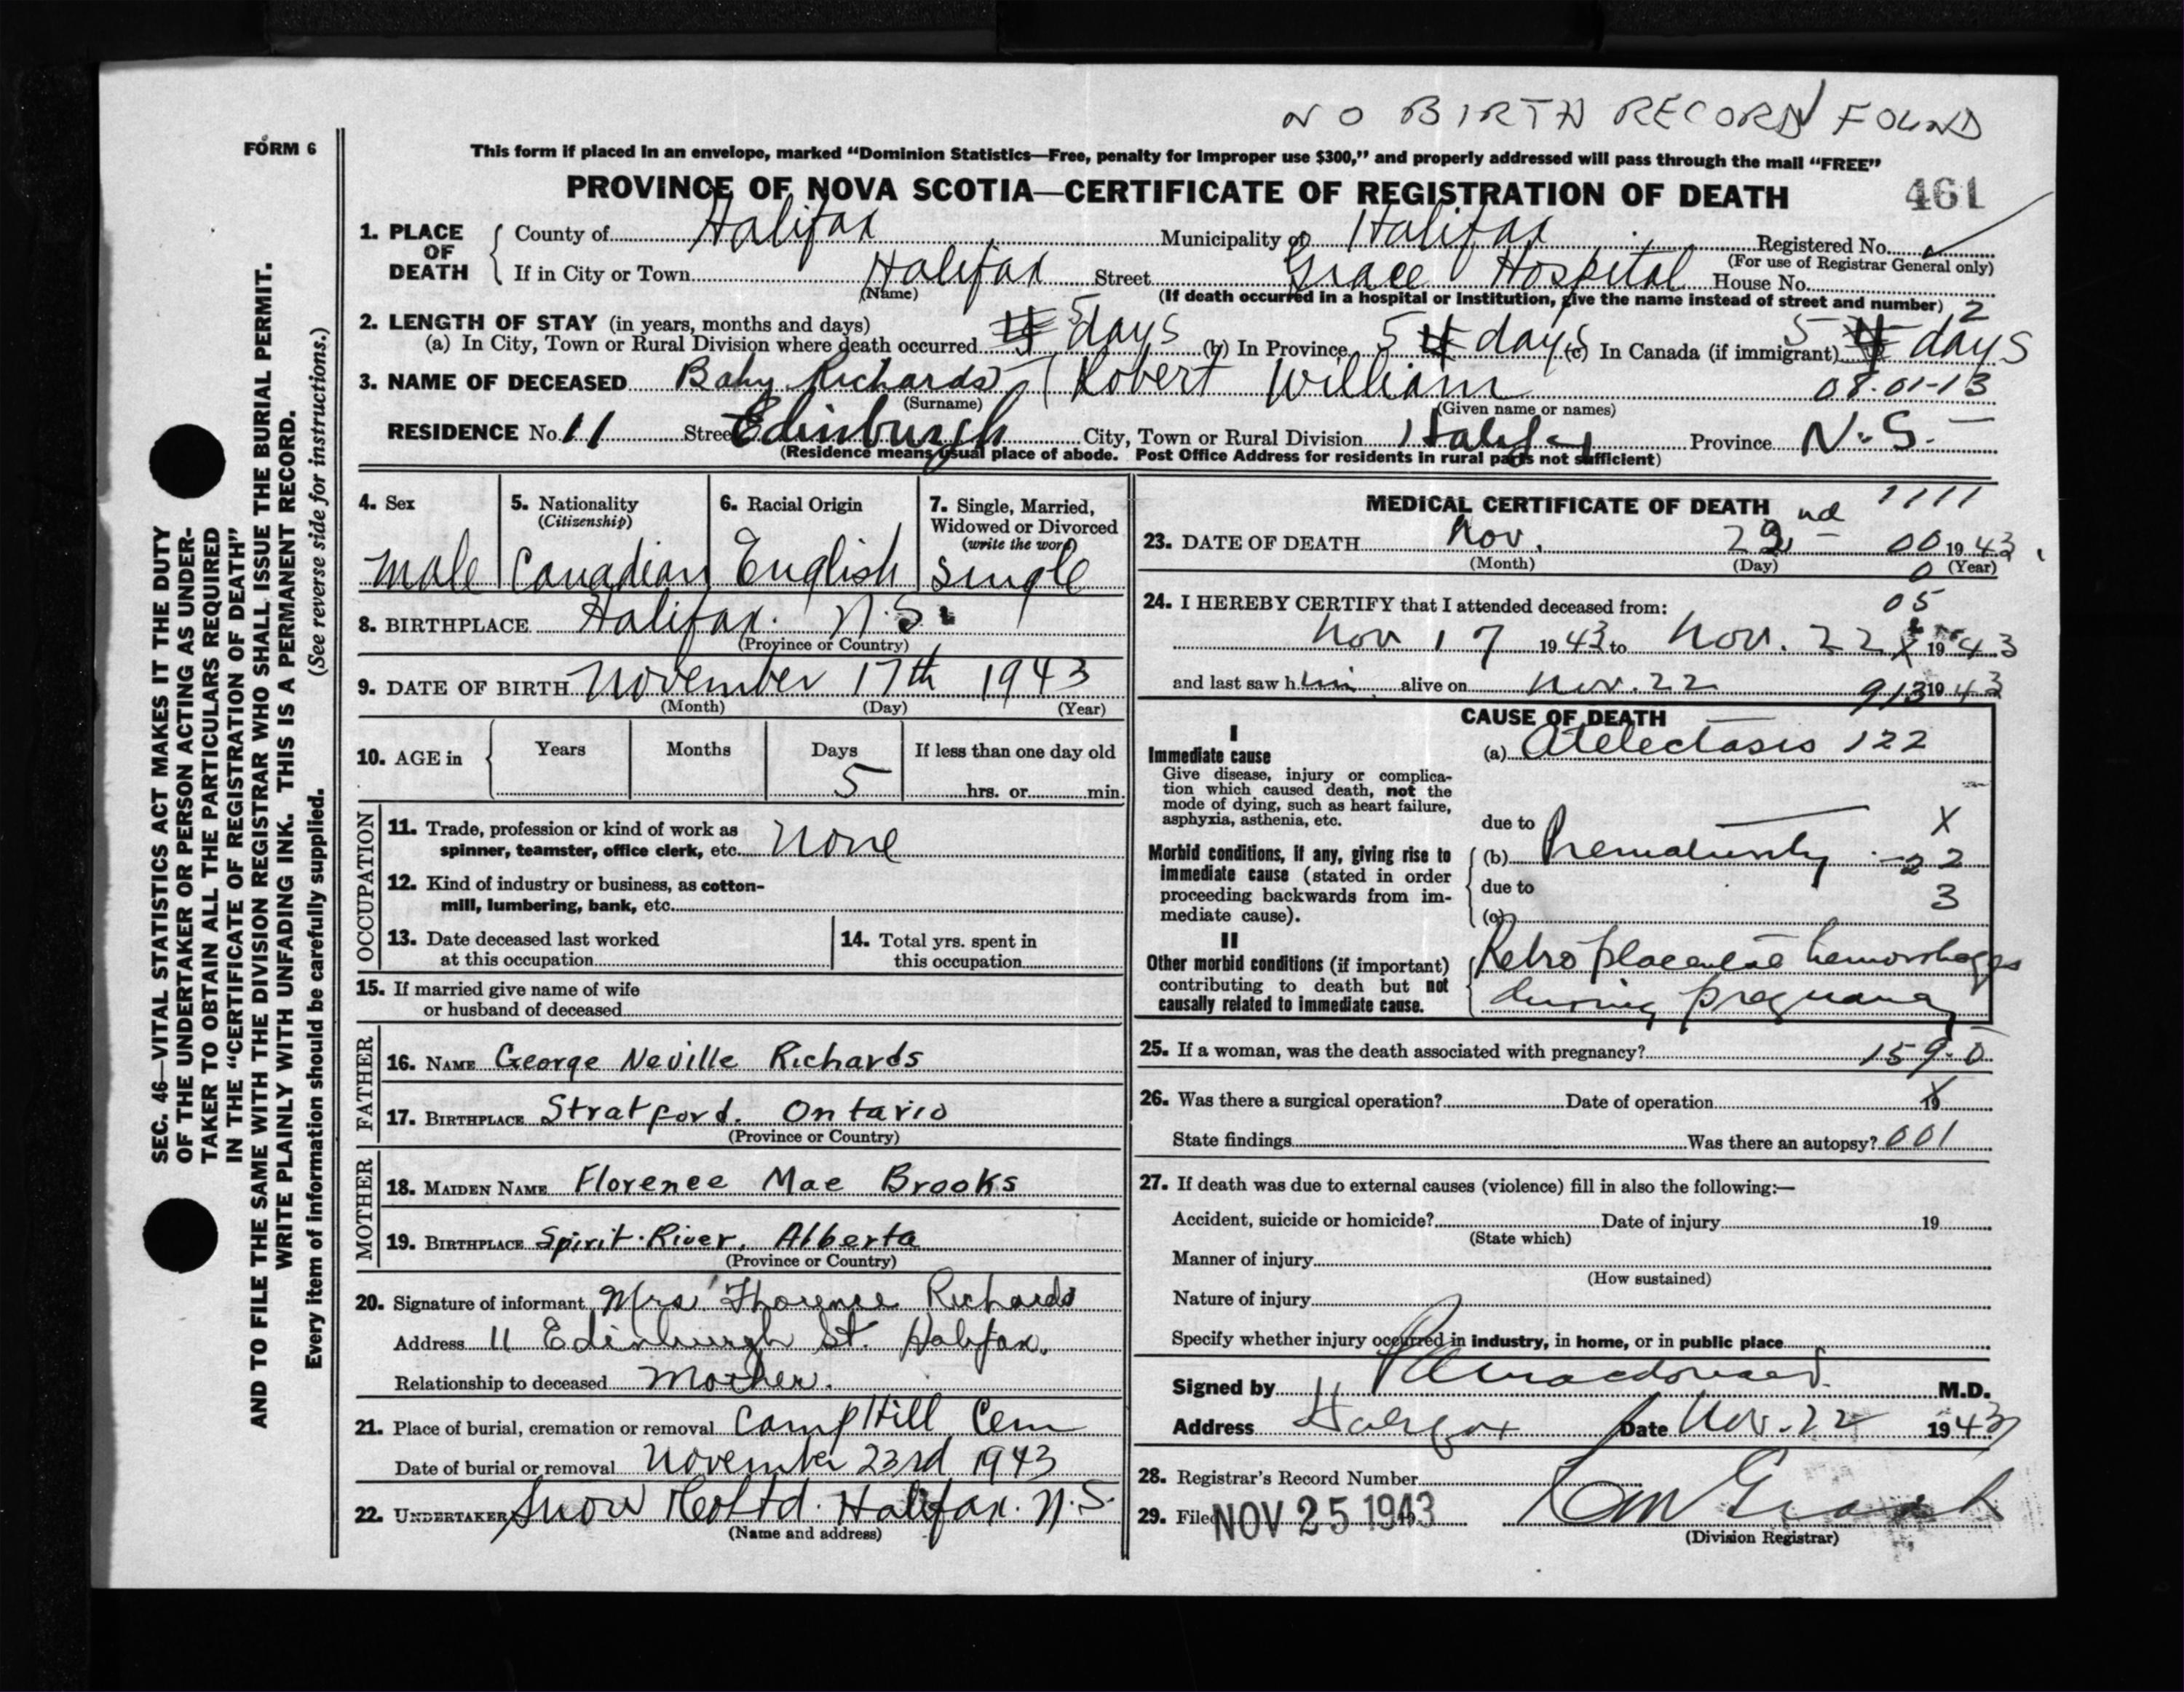 NO BIRTH RECORD FOUND
FORM 6
This form if placed in an envelope, marked “Dominion Statistics—Free, penalty for improper use $300,” and properly addressed will pass through the mail “FREE”
PROVINCE OF NOVA SCOTIA—CERTIFICATE OF REGISTRATION OF DEATH
461
1. PLACE OF DEATH
County of Halifax Municipality of Halifax Registered No.
(For use of Registrar General only)
If in City or Town Halifax Street Grace Hospital House No.
(Name) (If death occurred in a hospital or institution, give the name instead of street and number) 2
2. LENGTH OF STAY (in years, months and days)
(a) In City, Town or Rural Division where death occurred 5 days (b) In Province 5 days (c) In Canada (if immigrant) 5 days
3. NAME OF DECEASED Baby Richards (Robert William 08-01-13
(Surname) (Given name or names)
RESIDENCE No. 11 Street Edinburgh City, Town or Rural Division Halifax Province N.S.
(Residence means usual place of abode. Post Office Address for residents in rural parts not sufficient)
4. Sex
male
5. Nationality
(Citizenship)
Canadian
6. Racial Origin
English
7. Single, Married,
Widowed or Divorced
(write the word)
Single
8. BIRTHPLACE Halifax. N.S.
(Province or Country)
9. DATE OF BIRTH November 17th 1943
(Month) (Day) (Year)
10. AGE in
Years Months Days If less than one day old
5 hrs. or min.
OCCUPATION
11. Trade, profession or kind of work as
spinner, teamster, office clerk, etc. None
12. Kind of industry or business, as cotton-
mill, lumbering, bank, etc.
13. Date deceased last worked
at this occupation
14. Total yrs. spent in
this occupation
15. If married give name of wife
or husband of deceased
FATHER
16. NAME George Neville Richards
17. BIRTHPLACE Stratford. Ontario
(Province or Country)
MOTHER
18. MAIDEN NAME Florence Mae Brooks
19. BIRTHPLACE Spirit River, Alberta
(Province or Country)
20. Signature of informant Mrs Florence Richards
Address 11 Edinburgh St. Halifax.
Relationship to deceased Mother.
21. Place of burial, cremation or removal Camp Hill Cem
Date of burial or removal November 23rd 1943
22. UNDERTAKER Snow & Co Ltd. Halifax. N.S.
(Name and address)
MEDICAL CERTIFICATE OF DEATH 1111
23. DATE OF DEATH Nov. 22nd 00 1943
(Month) (Day) 0 (Year)
24. I HEREBY CERTIFY that I attended deceased from: 05
Nov 17 1943 to Nov. 22 1943
and last saw him alive on Nov. 22 913 1943
CAUSE OF DEATH
I
Immediate cause
Give disease, injury or complica-
tion which caused death, not the
mode of dying, such as heart failure,
asphyxia, asthenia, etc.
(a) Atelectasis 122
due to X
Morbid conditions, if any, giving rise to
immediate cause (stated in order
proceeding backwards from im-
mediate cause).
(b) Prematurity 22
due to 3
(c)
II
Other morbid conditions (if important)
contributing to death but not
causally related to immediate cause.
Retro placental hemorrhages
during pregnancy
25. If a woman, was the death associated with pregnancy? 159.0
26. Was there a surgical operation? Date of operation 19 X
State findings Was there an autopsy? 001
27. If death was due to external causes (violence) fill in also the following:—
Accident, suicide or homicide? Date of injury 19
(State which)
Manner of injury
(How sustained)
Nature of injury
Specify whether injury occurred in industry, in home, or in public place
Signed by Macdonald M.D.
Address Halifax Date Nov. 22 1943
28. Registrar's Record Number
29. Filed NOV 25 1943
(Division Registrar)
SEC. 46—VITAL STATISTICS ACT MAKES IT THE DUTY
OF THE UNDERTAKER OR PERSON ACTING AS UNDER-
TAKER TO OBTAIN ALL THE PARTICULARS REQUIRED
IN THE “CERTIFICATE OF REGISTRATION OF DEATH”
AND TO FILE THE SAME WITH THE DIVISION REGISTRAR WHO SHALL ISSUE THE BURIAL PERMIT.
WRITE PLAINLY WITH UNFADING INK. THIS IS A PERMANENT RECORD.
Every item of information should be carefully supplied. (See reverse side for instructions.)